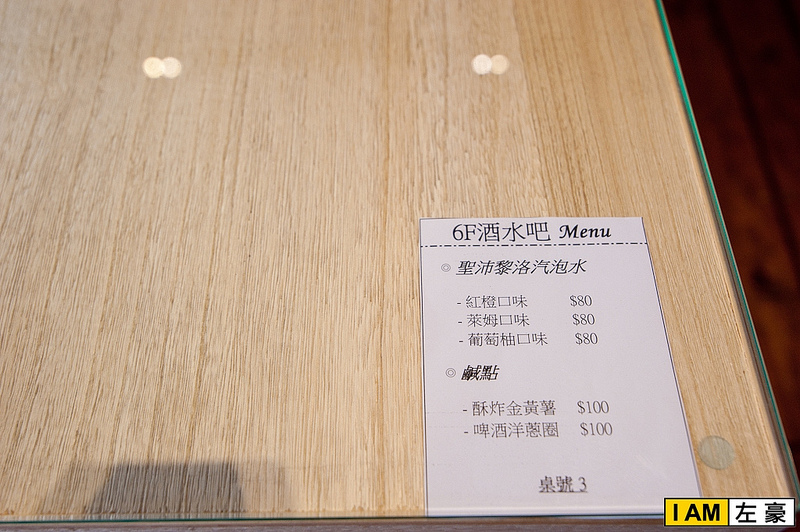 6F酒水吧 Menu
◎ 聖沛黎洛汽泡水
- 紅橙口味 $80
- 萊姆口味 $80
- 葡萄柚口味 $80
◎ 鹹點
- 酥炸金黃薯 $100
- 啤酒洋蔥圈 $100
桌號 3
I AM 左豪